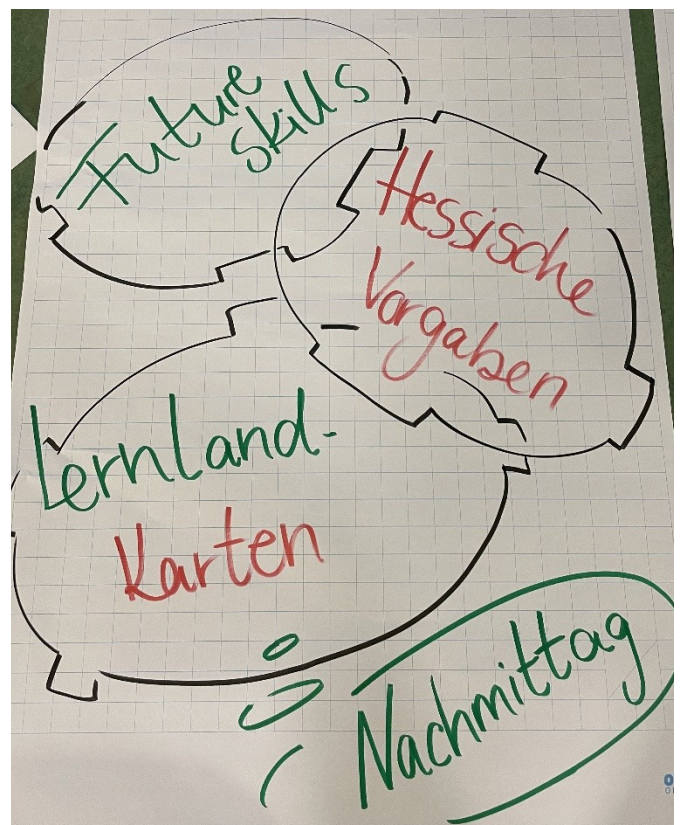 Future
Skills
Hessische
Vorgaben
LernLand-
Karten
Nachmittag